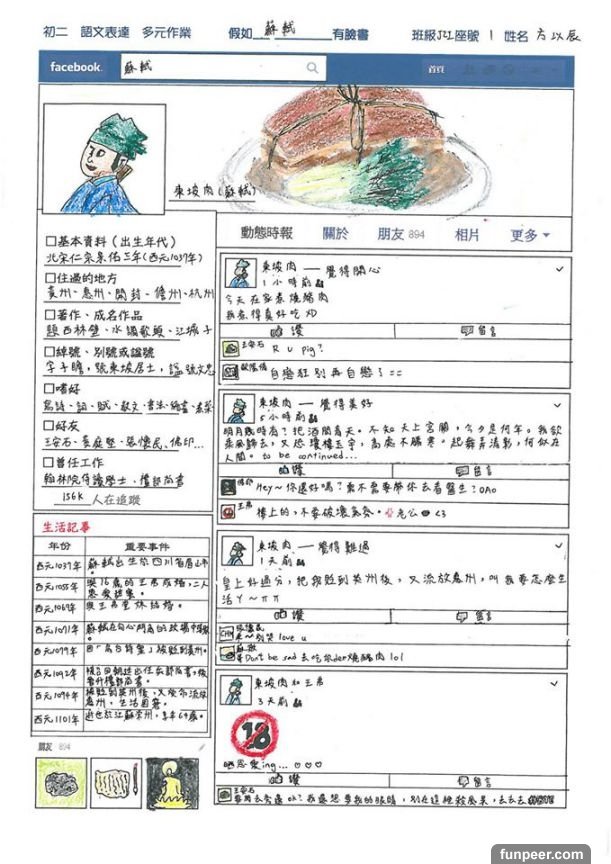 初二 語文表達 多元作業 假如 蘇軾 有臉書 班級 座號 1 姓名 方以辰
facebook 蘇軾 首頁
東坡肉(蘇軾)
動態時報 關於 朋友 894 相片 更多
□基本資料(出生年代)
北宋仁宗景佑三年(西元1037年)
□住過的地方
黃州、惠州、開封、儋州、杭州
□著作、成名作品
題西林壁、水調歌頭、江城子
□綽號、別號或諡號
字子瞻,號東坡居士,諡號文忠
□嗜好
寫詩、詞、賦、散文、書法、繪畫、煮菜
□好友
王安石、黃庭堅、張懷民、佛印...
□曾任工作
翰林院侍讀學士、禮部尚書
156k 人在追蹤
生活記事
年份 重要事件
西元1037年 蘇軾出生於四川省眉山市。
西元1055年 與16歲的王弗成婚,二人恩愛甜蜜。
西元1069年 與王閏之結婚。
西元1071年
西元1079年 因「烏台詩案」被貶到黃州。
西元1092年
西元1094年
西元1101年 逝世於江蘇常州,享年64歲。
朋友 894
東坡肉 — 覺得開心
1小時前
今天在家煮燒豬肉
我煮得真好吃 XD
讚 留言
王安石
R u pig?
歐陽脩 自戀狂別再自戀了==
東坡肉 — 覺得美好
5小時前
明月幾時有?把酒問青天。不知天上宮闕,今夕是何年。我欲
乘風歸去,又恐瓊樓玉宇,高處不勝寒。起舞弄清影,何似在
人間。to be continued...
讚 留言
佛印 Hey~你還好嗎?需不需要帶你去看醫生?OAO
王弗 樓上的,不要破壞氣氛。老公 <3
東坡肉 — 覺得難過
1天前
皇上好過分,把我貶到英州後,又流放惠州,叫我要怎麼生
活ㄚ~ㄒㄒ
讚 留言
張懷民
乖~別哭 love u
蘇轍
Don't be sad 去吃你der燒豬肉 lol
東坡肉和王弗
3天前
18
曬恩愛ing... ♡♡♡
讚 留言
王安石
funpeer.com